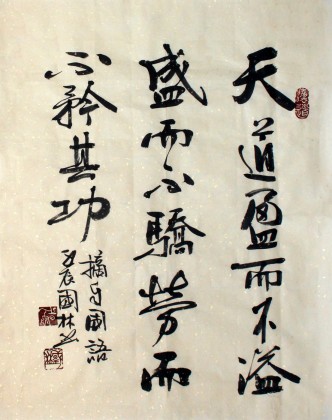 天道盈而不溢
盛而不驕勞而
不矜其功
摘自國語
辰國林